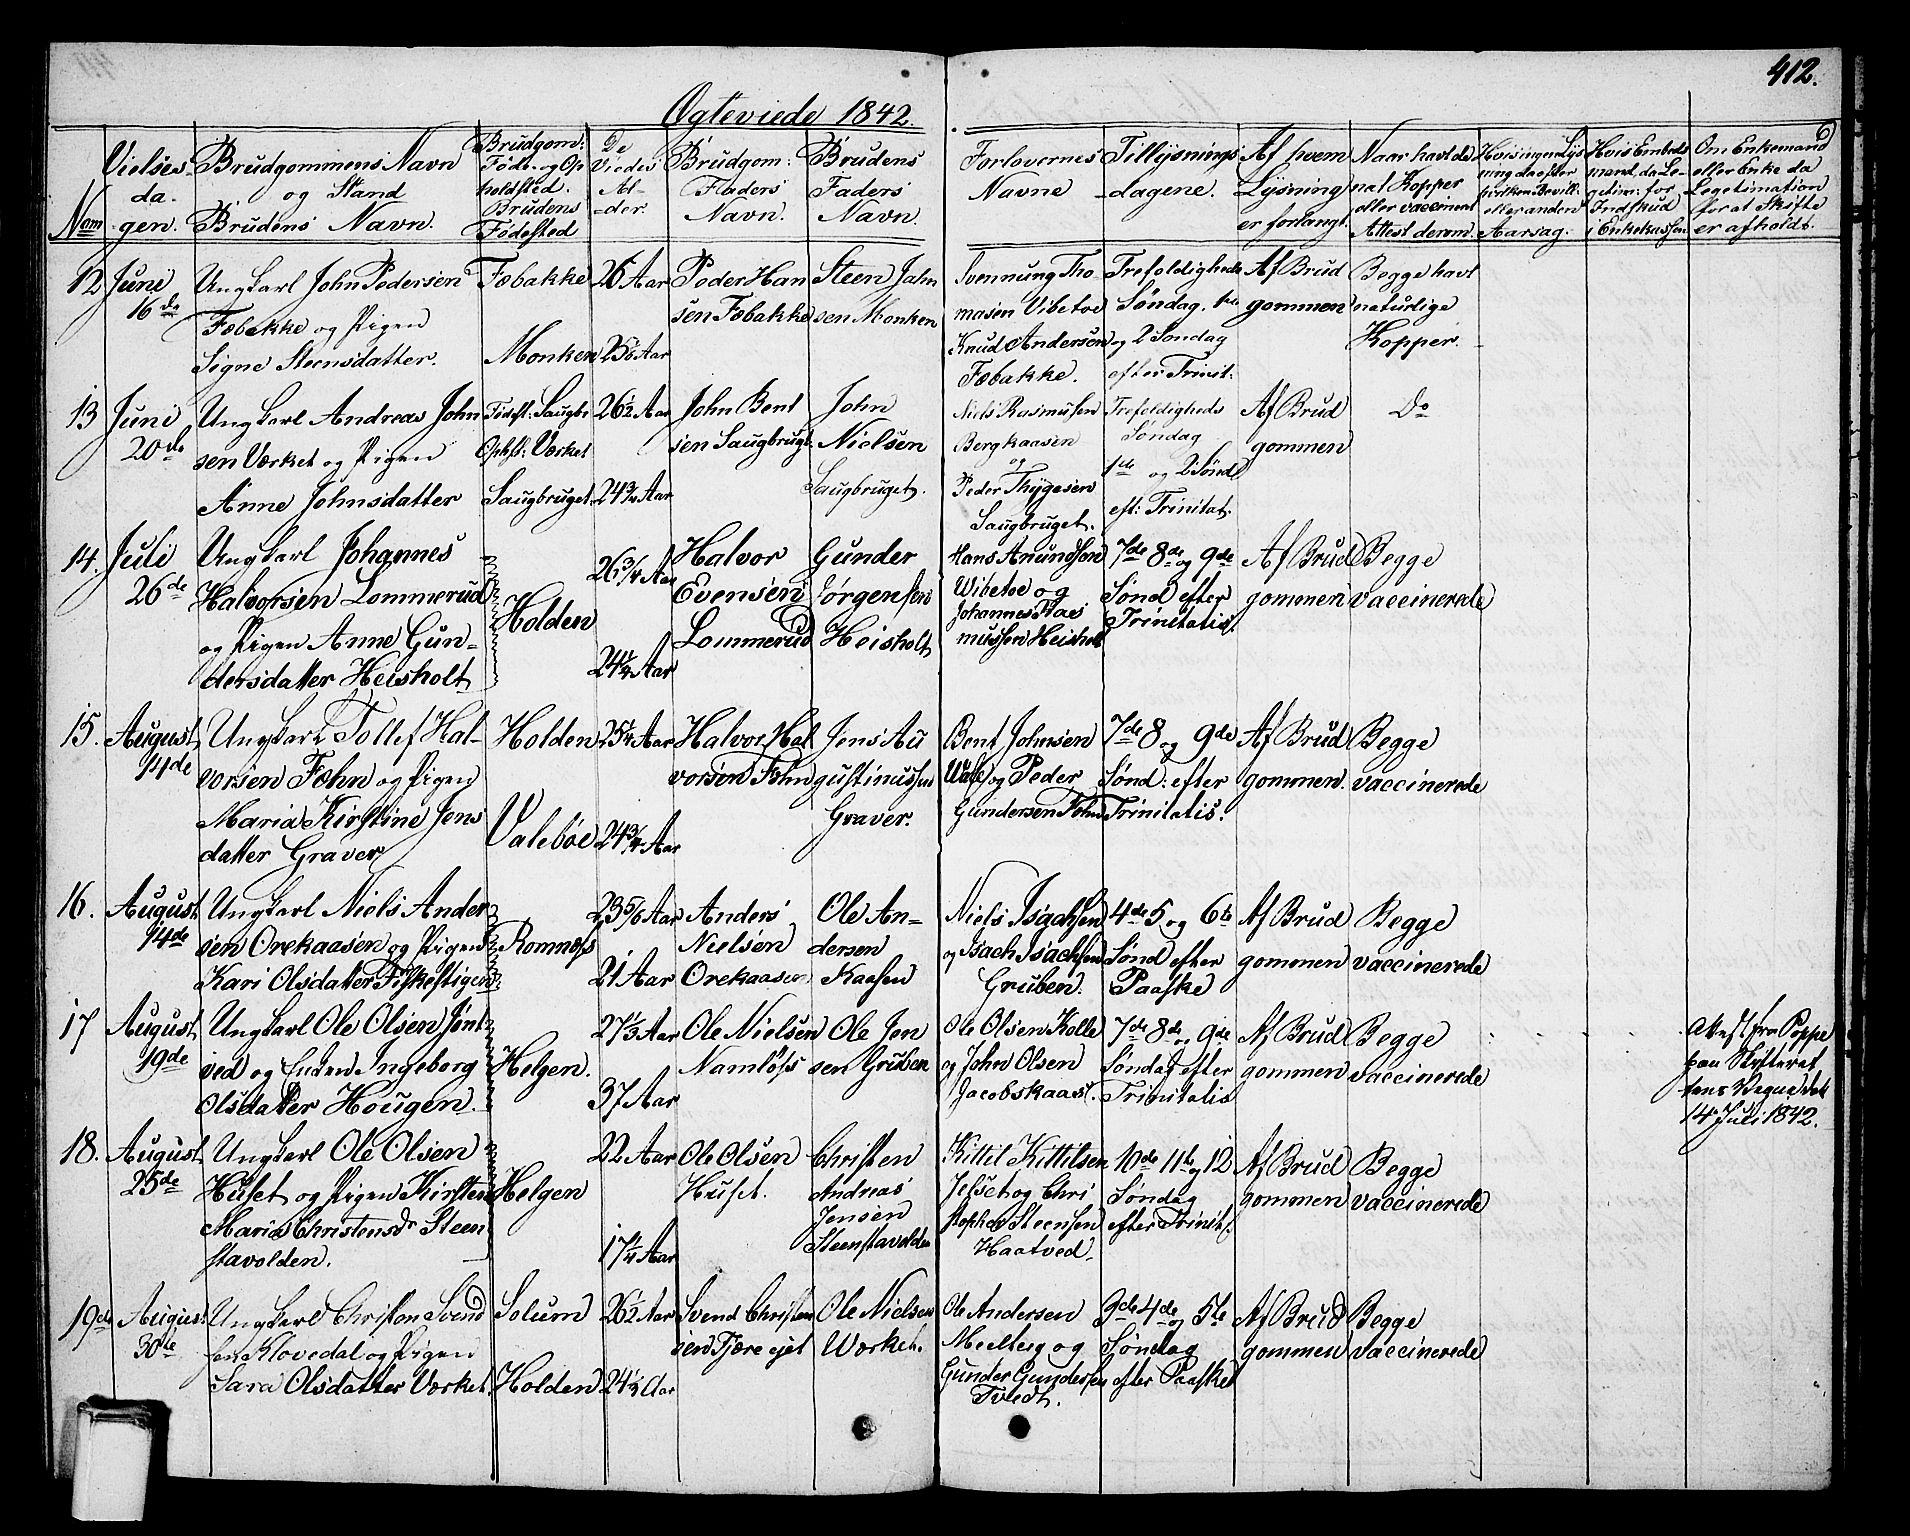 412.
Ægteviede 1842.
Nom
Vielses
da-
gen.
Brudgommens Navn
og Stand
Brudens Navn.
Brudgom:
Føde- og Op
holdsted.
Brudens
Fødested
De
Viedes
Al-
der.
Brudgom:
Faders
Navn.
Brudens
Faders
Navn.
Forlovernes
Navne.
Tillysnings
dagene.
Af hvem
Lysning
er forlangt.
Naar havt de
nat Kopper
eller vaccineret
Attest derom.
Hvis ingen Lys
ning da efter
hvilken Bevill:
eller anden
Aarsag.
Hvis Embeds
mand, da Le-
getim: for
Indskud
i Enkekassen
Om Enkemand
eller Enke da
Legetimation
for at Skifte
er afholdt.
12
June
16de
Ungkarl John Pedersen
Fæbakke og Pigen
Signe Steensdatter.
Fæbakke
Monken
26 Aar
25 Aar
Peder Han
sen Fæbakke
Steen Jahn
sen Monken
Svennung Tho-
masen Vibetoe
Knud Andersen
Fæbakke.
Trefoldigheds
Søndag. 1ste
og 2 Søndag
efter Trinit:
Af Brud
gommen
Begge havt
naturlige
Kopper.
13
Juni
20de
Ungkarl Andreas John
sen Værket og Pigen
Anne Johnsdatter
Fødest: Saugbr
Ophst: Værket
Saugbruget.
26½ Aar
24¾ Aar
John Bent
sen Saugbrugt
John
Nielsen
Saugbruget.
Niels Rasmusen
Bergkaasen
og
Peder Thygesen
Saugbruget.
Trefoldigheds
Søndag
1de og 2 Sønd
eft: Trinitat.
Af Brud
gommen
Do
14.
Juli
26de
Ungkarl Johannes
Halvorsen Lommerud
og Pigen Anne Gun-
dersdatter Heisholt
Holden
26¾ Aar
24¼ Aar
Halvor
Evensen
Lommerud
Gunder
Jørgensen
Heisholt
Hans Amundsen
Wibetoe og
Johannes Ras
mussen Heisholt
7de 8de og 9de
Sønd efter
Trinitatis.
Af Brud
gommen
Begge
vaccinerede
15.
August
14de
Ungkarl Tollef Hal-
vorsen Fæhn og Pigen
Maria Kirstine Jens
datter Graver
Holden
Valebøe
25¼ Aar
24¾ Aar
Halvor Hal
vorsen Fæhn
Jens Au
gustinussen
Graver.
Bent Johnsen
og Peder
Gundersen Fæhn
7de 8 og 9de
Sønd: efter
Trinitatis.
Af Brud
gommen.
Begge
vaccinerede
16.
August
14de
Ungkarl Niels Ander
sen Orekaasen og Pigen
Kari Olsdatter Fiskestigen
Romnæss
23 5/6 Aar
21 Aar
Anders
Nielsen
Orekaasen
Ole An-
dersen
Kaasen
Niels Isachsen
og Isach Isachsen
Gruben.
4de 5 og 6te
Sønd efter
Paaske
Af Brud
gommen
Begge
vaccinerede
17
August
19de
Ungkarl Ole Olsen Jønt
ved og Enken Ingeborg
Olsdatter Hougen.
Helgen.
27⅓ Aar
37 Aar
Ole Nielsen
Namløss
Ole Jen
sen Gruben
Ole Olsen Kolle
og John Olsen
Jacobskaas.
7de 8de og 9de
Søndag efter
Trinitatis
Af Brud
gommen
Begge
vaccinerede
Attest fra Poppe
paa Skifteret
tens Vegne dat
14 Juli 1842.
18.
August
25de
Ungkarl Ole Olsen
Huset og Pigen Kirsten
Maria Christensdr Steen
stavolden.
Helgen
22 Aar
17¼ Aar
Ole Olsen
Huset.
Christen
Andreas
Jensen
Steenstavolden
Kittil Kittilsen
Jefset og Chri
stopher Steensen
Haatved
10de 11te og 12
Søndag
efter Trinit.
Af Brud
gommen
Begge
vaccinerede
19de
August
30te
Ungkarl Christen Svend
sen Klovedal og Pigen
Sara Olsdatter Værket
Solum
Holden
26½ Aar
24½ Aar
Svend Christen
sen Tjære ejet
Ole Nielsen
Værket.
Ole Andersen
Meelberg og
Gunder Gundersen
Tvedt.
3de 4de og 5te
Søndag
efter Paaske
Af Brud
gommen
Begge
vaccinerede